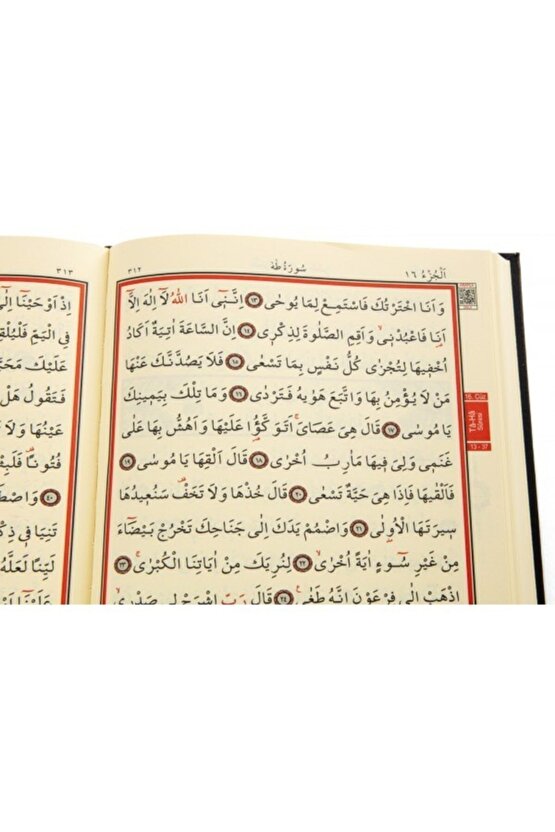 اَلْجُزْءُ ١٦
سُورَةُ طٰهٰ
٣١٢
وَاَنَا اخْتَرْتُكَ فَاسْتَمِعْ لِمَا يُوحٰى ﴿١٣﴾ اِنَّنٖٓي اَنَا اللّٰهُ لَٓا اِلٰهَ اِلَّٓا
اَنَا فَاعْبُدْنٖي وَاَقِمِ الصَّلٰوةَ لِذِكْرٖي ﴿١٤﴾ اِنَّ السَّاعَةَ اٰتِيَةٌ اَكَادُ
اُخْفٖيهَا لِتُجْزٰى كُلُّ نَفْسٍ بِمَا تَسْعٰى ﴿١٥﴾ فَلَا يَصُدَّنَّكَ عَنْهَا
مَنْ لَا يُؤْمِنُ بِهَا وَاتَّبَعَ هَوٰيهُ فَتَرْدٰى ﴿١٦﴾ وَمَا تِلْكَ بِيَمٖينِكَ
يَا مُوسٰى ﴿١٧﴾ قَالَ هِيَ عَصَايَ اَتَوَكَّؤُ۬ا عَلَيْهَا وَاَهُشُّ بِهَا عَلٰى
غَنَمٖي وَلِيَ فٖيهَا مَاٰرِبُ اُخْرٰى ﴿١٨﴾ قَالَ اَلْقِهَا يَا مُوسٰى ﴿١٩﴾
فَاَلْقٰيهَا فَاِذَا هِيَ حَيَّةٌ تَسْعٰى ﴿٢٠﴾ قَالَ خُذْهَا وَلَا تَخَفْ سَنُعٖيدُهَا
سٖيرَتَهَا الْاُو۫لٰى ﴿٢١﴾ وَاضْمُمْ يَدَكَ اِلٰى جَنَاحِكَ تَخْرُجْ بَيْضَٓاءَ
مِنْ غَيْرِ سُٓوءٍ اٰيَةً اُخْرٰى ﴿٢٢﴾ لِنُرِيَكَ مِنْ اٰيَاتِنَا الْكُبْرٰى ﴿٢٣﴾
اِذْهَبْ اِلٰى فِرْعَوْنَ اِنَّهُ طَغٰى ﴿٢٤﴾ قَالَ رَبِّ اشْرَحْ لٖي صَدْرٖي
16. Cüz
Tâ-Hâ
Sûresi
13 - 37
٣١٣
اِذْ اَوْحَيْنَٓا اِلٰٓى
فِي الْيَمِّ فَلْيُلْقِ
عَلَيْكَ مَحَ
فَتَقُولُ هَلْ
عَيْنُهَا وَلَا
فُتُونًا فَلَبِثْ
﴿٤٠﴾ وَاصْطَ
تَنِيَا فٖي ذِ
لَيِّنًا لَعَلَّهُ
عَلَيْنَٓا